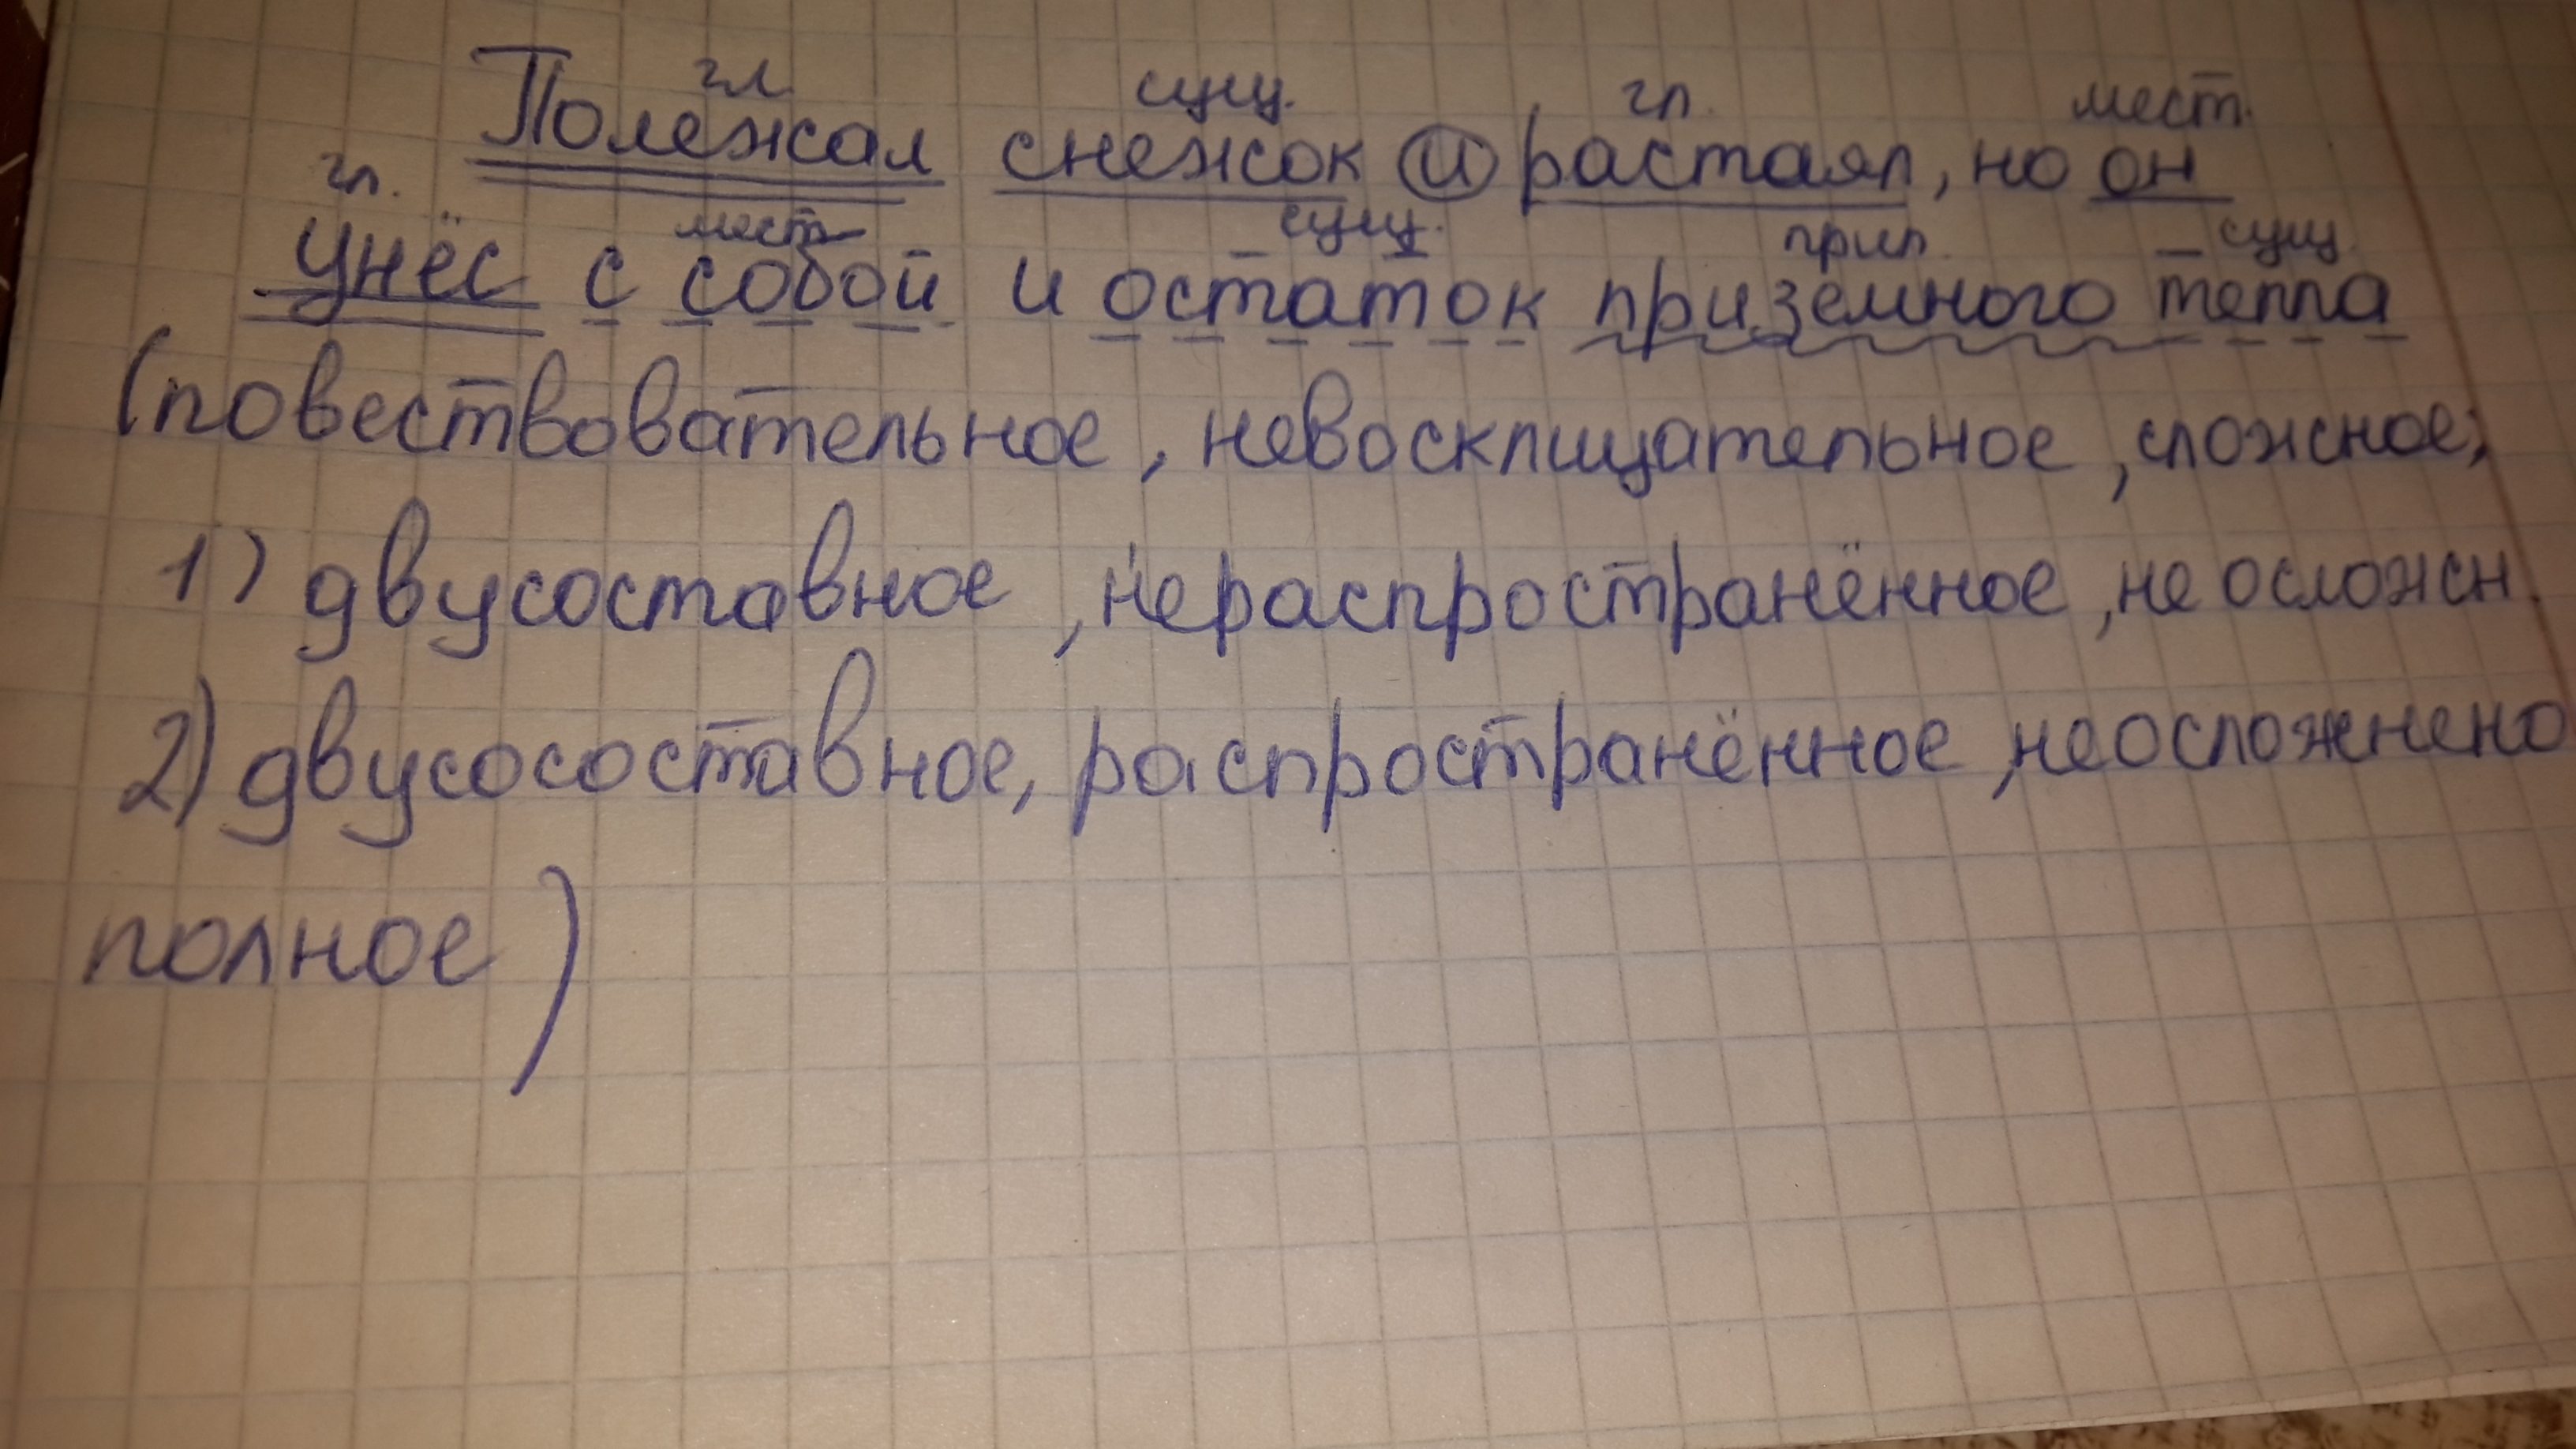 гл. сущ. гл. мест.
Полежал снежок и растаял, но он
гл. мест. сущ. прил. сущ.
унёс с собой и остаток приземного тепла
(повествовательное, невосклицательное, сложное;
1) двусоставное, нераспространённое, не осложн.
2) двусосоставное, распространённое, неосложнено
полное)